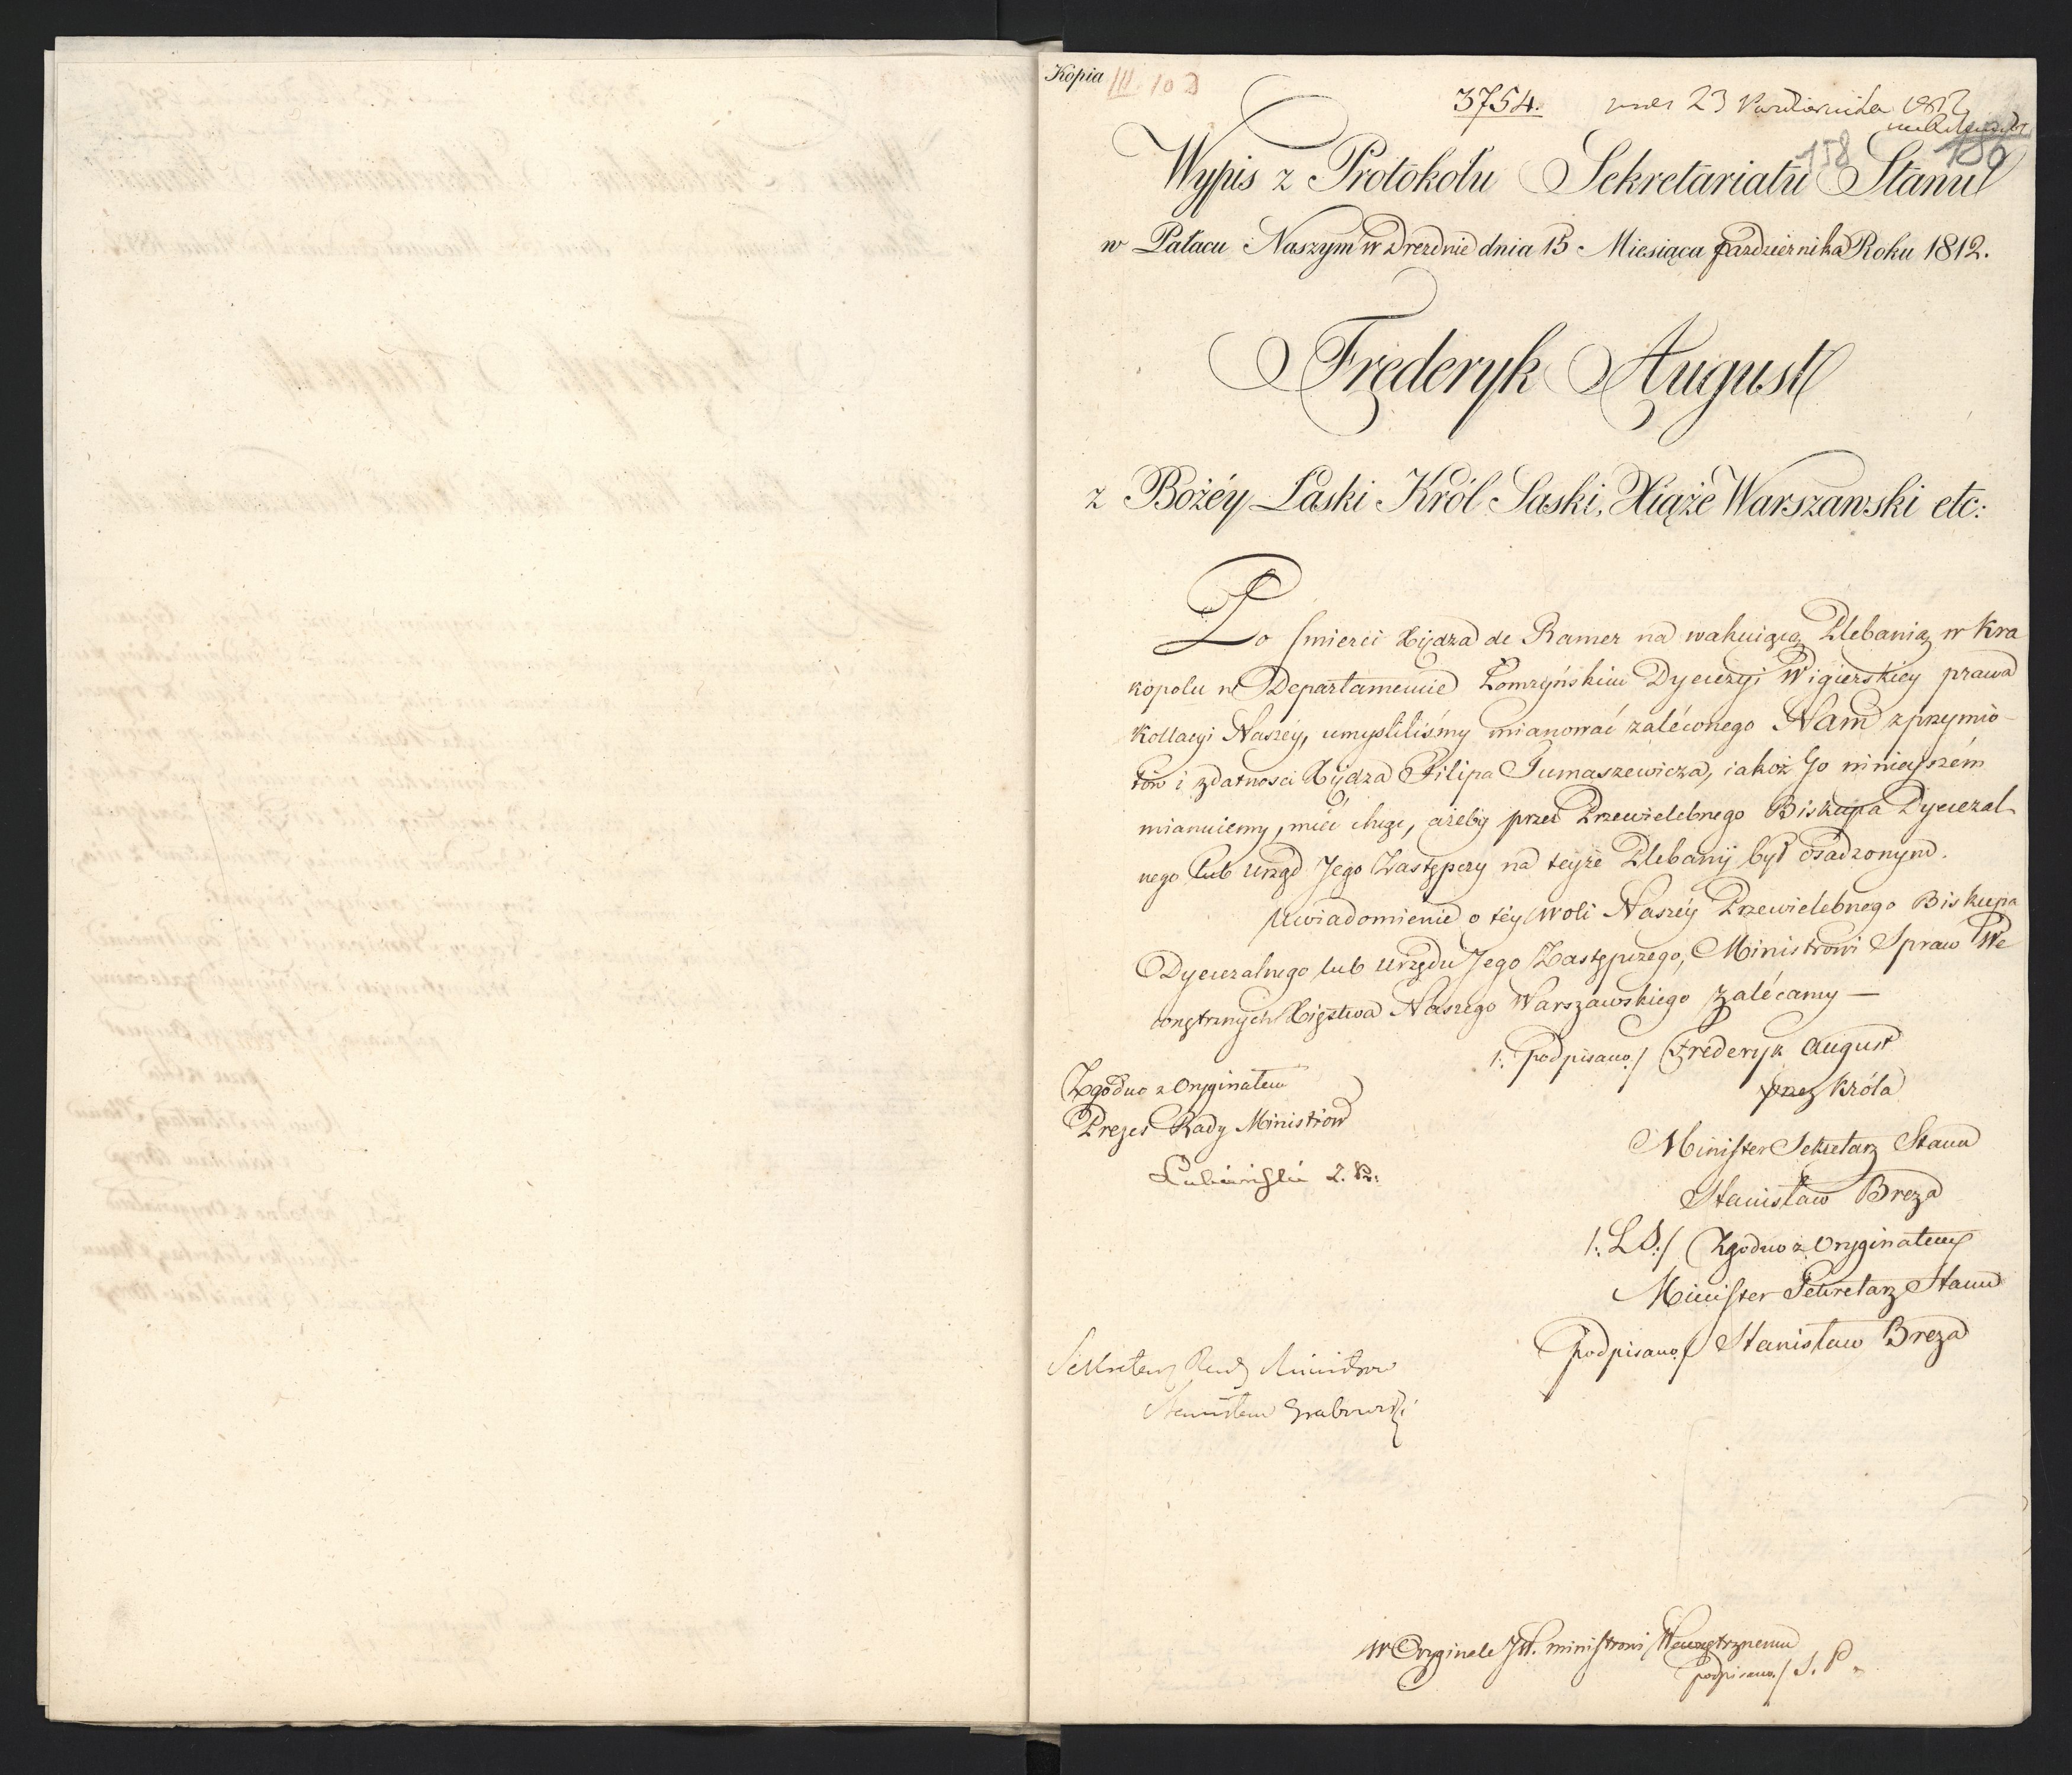 Kopia III. 10
3754. 23 Października 1812
158 186
Wypis z Protokołu Sekretariatu Stanu
w Pałacu Naszym w Dreźnie dnia 15 Miesiąca Października Roku 1812.
Frederyk August
z Bożéy Łaski Król Saski, Xiąże Warszawski etc:
Po śmierci Xiędza de Ramer na wakuiącą Plebanią w Kra
kopolu w Departamencie Łomżyńskim Dyecezyi Wigierskiey prawa
Kollacyi Naszéy, umyśliliśmy mianować zalêconego Nam z przymio-
tów i zdatności Xiędza Filipa Tumaszewicza, iakoż Go ninieyszém
mianuiemy, mieć chcąc, ażeby przez Przewielebnego Biskupa Dyecezal-
nego lub Urząd Jego Zastępczy na teyże Plebanij był osadzonym.
Uwiadomienie o téy Woli Naszéy Przewielebnego Biskupa
Dyecezalnego lub Urzędu Jego Zastępczego, Ministrowi Spraw We
wnętrznych Xięstwa Naszego Warszawskiego zalécamy —
/: Podpisano:/ Frederyk August
przez Króla
Minister Sekretarz Stanu
Stanisław Breza
/: L.S:/ Zgodno z Oryginałem
Minister Sekretarz Stanu
Podpisano/ Stanisław Breza
Zgodno z Oryginałem
Prezes Rady Ministrów
Sekretarz Rady Ministrów
Stanisław Grabowski
W Oryginale JW. Ministrowi Wewnętrznemu
podpisano/ S. P.